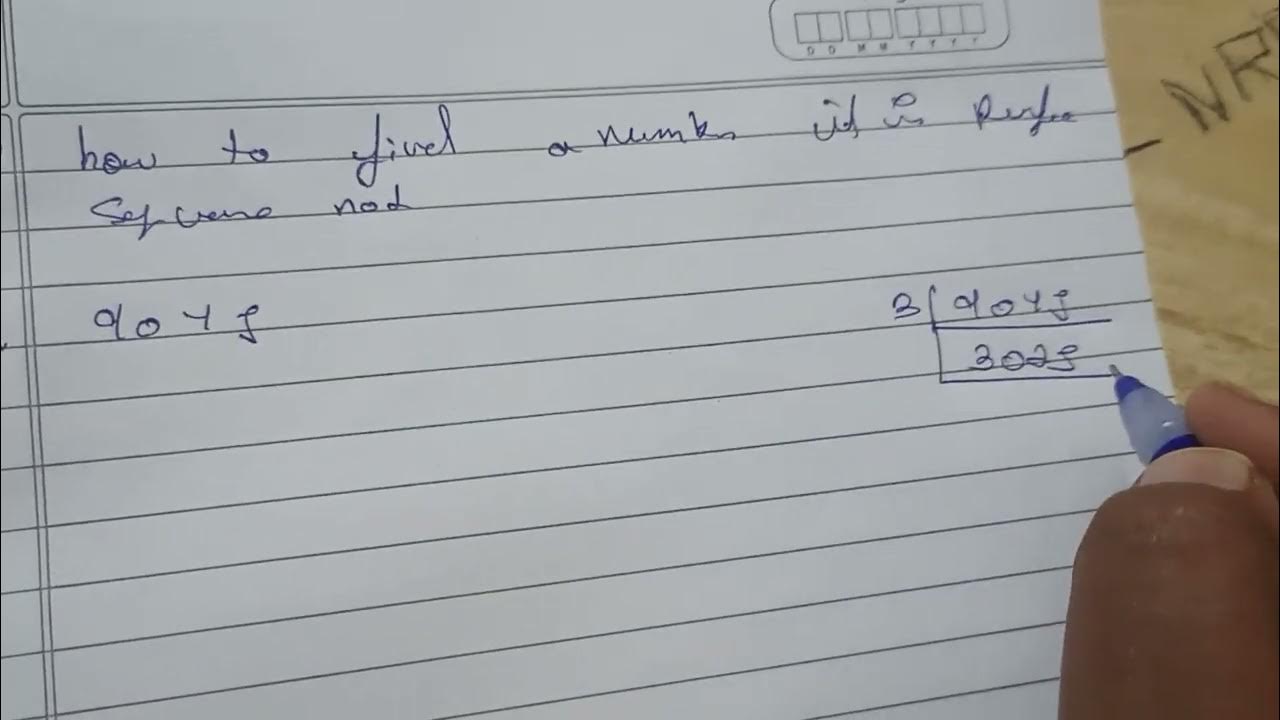 D D M M Y Y Y Y
how to find a number it is Perfec
Square not
9075
3 9075
3025